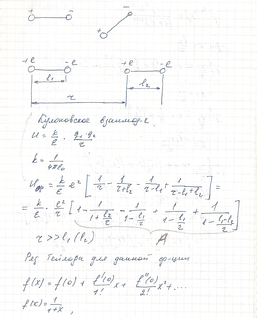 + −
+ −
+e −e +e −e
l₁ l₂
r
Кулоновское взаимод.
U = k/ε · q₁ q₂ / r
k = 1/4πε₀
= k/ε e² [1/r − 1/(r+l₂) − 1/(r−l₁) + 1/(r−l₁+l₂)] =
= k/ε · e²/r [1 − 1/(1+l₂/r) − 1/(1−l₁/r) + 1/(1−(l₁−l₂)/r)]
A
r >> l₁ (l₂)
Ряд Тейлора для данной ф-ции
f(x) = f(0) + f'(0)/1! x + f''(0)/2! x² + ...
f(x) = 1/(1+x) ,